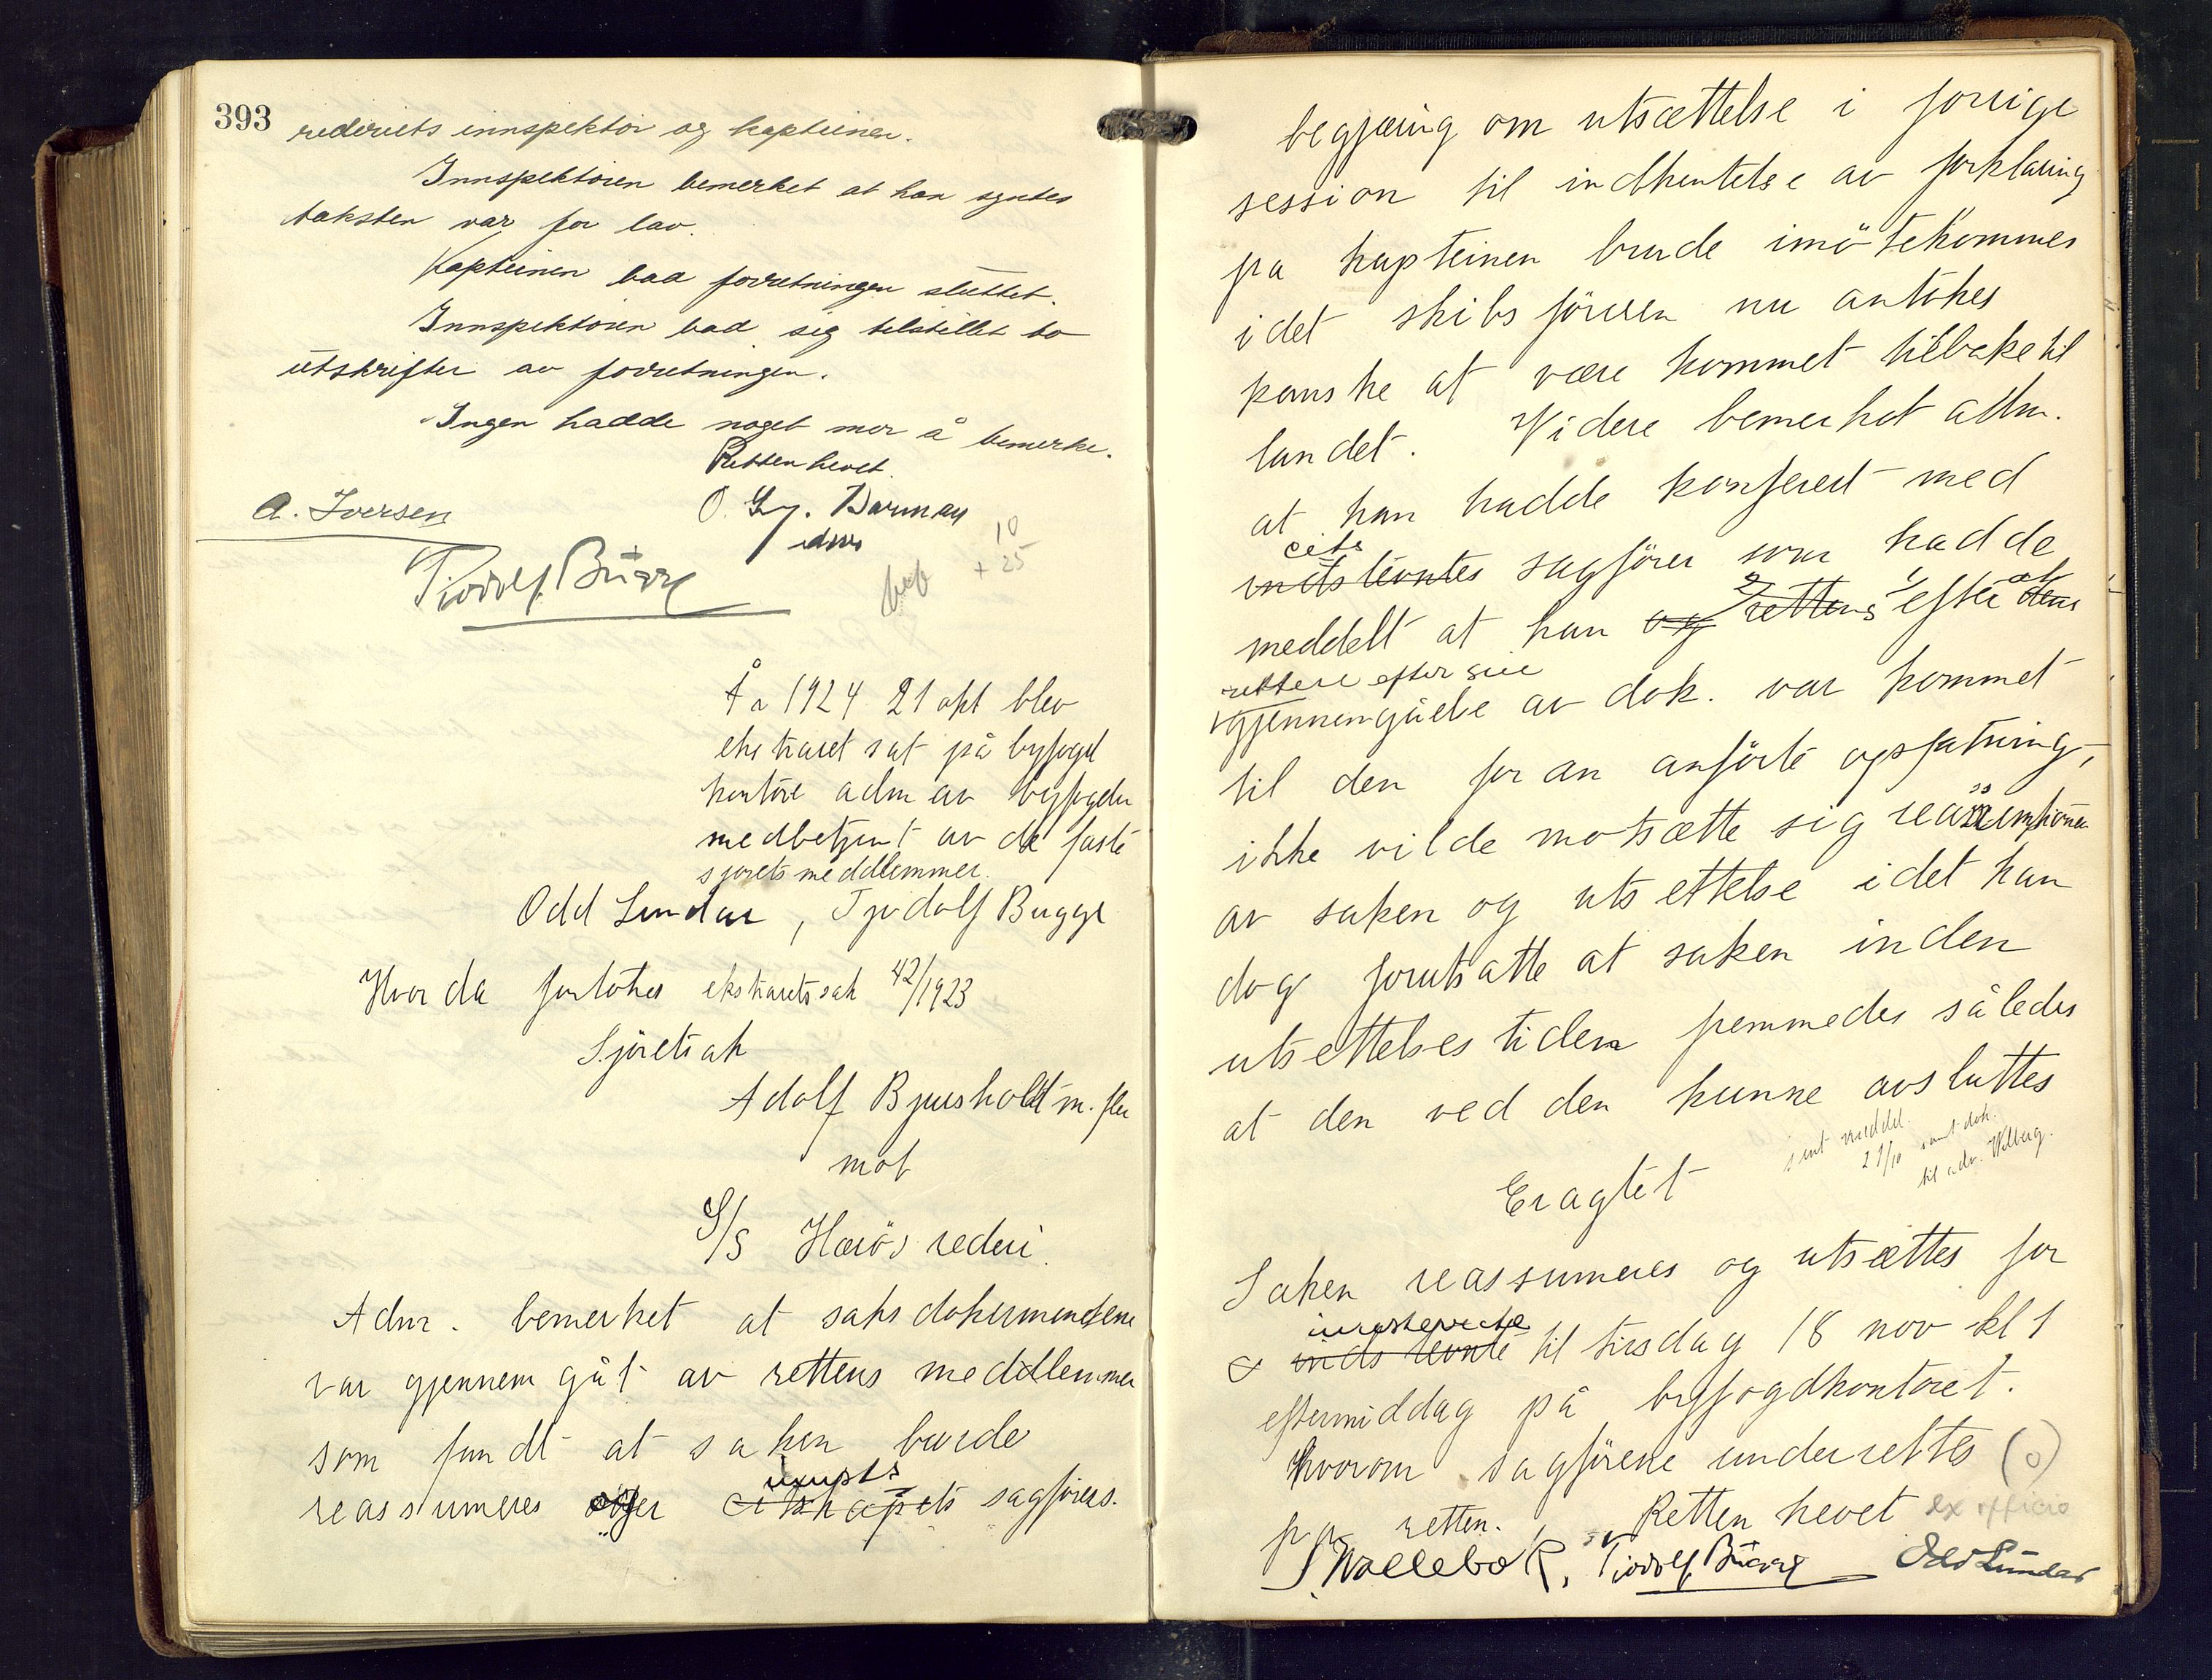 393
rederiets innspektör og kapteinen.
Innspektören bemerket at han syntes
taksten var for lav.
Kapteinen bad forretningen sluttet.
Innspektören bad sig tilstillet to
utskrifter av forretningen.
Ingen hadde noget mer å bemerke.
Retten hevet
A. Iversen
Tjodolf Bugge
10
+ 25
År 1924 21 okt blev
ekstraret sat på byfogd
kontore adm av byfogden
medbetjent av de faste
sjøretsmeddlemmer.
Odd Lundar, Tjodolf Bugge
Hvor da foretokes ekstraretssak 42/1923
Sjöretsak
Adolf Bjusholdt m. fler
mot
S/S Herös rederi.
Adm. bemerket at saksdokumentene
var gjennemgåt av rettens meddlemmer
som fandt at saken burde
reassumeres og sagförers.
begjæring om utsættelse i forrige
session til indhentelse av forklaring
pa kapteinen burde imötekommes
idet skibsföreren nu antokes
kanske at være kommet tilbake til
landet. Videre bemerket adm.
at han hadde konferert med
cits
indstevntes sagförer som hadde
meddelt at han og 2/ rettens 1/ efter at dens
rettens efter sin
gjennemgåelse av dok. var kommet
til den foran anförte opfatning,
ikke vilde motsætte sig reassumtionen
av saken og utsettelse idet han
dog forutsatte at saken inden
utsettelsestiden fremmedes således
at den ved den kunne avsluttes
sent meddel.
21/10 samt dok.
til adv. Wilberg.
Eragtet
Saken reassumeres og utsættes for
innstevnte
indstevnte til tirsdag 18 nov kl 1
eftermiddag på byfogdkontoret.
Hvorom sagförerne underrettes (o)
fra retten. Retten hevet ex officio
S Wallebo R, Tjodolf Bugge Odd Lundar